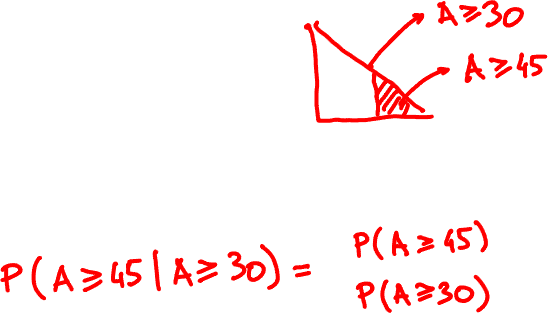 A≥30
A≥45
P(A≥45|A≥30) =
P(A≥45)
P(A≥30)